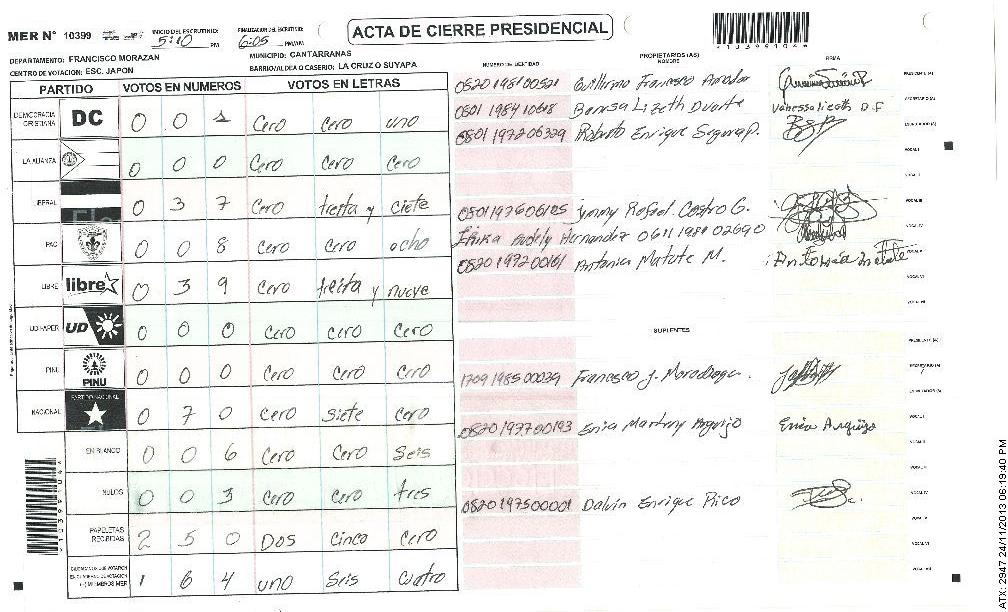 MER N° 10399
INICIO DEL ESCRUTINIO: 5:10 PM
FINALIZACION DEL ESCRUTINIO: 6:05 PM/AM
ACTA DE CIERRE PRESIDENCIAL
DEPARTAMENTO: FRANCISCO MORAZAN
MUNICIPIO: CANTARRANAS
CENTRO DE VOTACION: ESC. JAPON
BARRIO/ALDEA O CASERIO: LA CRUZ O SUYAPA
PARTIDO VOTOS EN NUMEROS VOTOS EN LETRAS
DEMOCRACIA CRISTIANA DC 0 0 1 Cero Cero uno
LA ALIANZA 0 0 0 Cero Cero Cero
LIBERAL 0 3 7 Cero treita y ciete
PAC 0 0 8 Cero Cero ocho
LIBRE libre 0 3 9 Cero treita y nueve
UD-FAPER UD 0 0 0 Cero Cero Cero
PINU PINU 0 0 0 Cero Cero Cero
NACIONAL PARTIDO NACIONAL 0 7 0 Cero Siete Cero
EN BLANCO 0 0 6 Cero Cero Seis
NULOS 0 0 3 Cero Cero tres
PAPELETAS RECIBIDAS 2 5 0 Dos Cinco Cero
1 6 4 uno Seis Cuatro
NUMERO DE IDENTIDAD PROPIETARIOS (AS) NOMBRE FIRMA
0520198100521 Guillermo Francisco Amador PRESIDENTE (A)
0801 1984 10618 Lizeth Duarte SECRETARIO (A)
0801 1972 06329 Roberto Enrique ESCRUTADOR (A)
VOCAL I
VOCAL II
0801197606105 Jymmy Rafael Castro G. VOCAL III
Hernandez 0611 1981 02690 VOCAL IV
0820 1972 00161 Antonia Matute M. VOCAL V
VOCAL VI
VOCAL VII
SUPLENTES
PRESIDENTE (A)
1709 1985 00039 Francisco J. SECRETARIO (A)
ESCRUTADOR (A)
0820 1977 00193 Erica VOCAL I
VOCAL II
VOCAL III
0820 1975 00001 Dalvin Enrique Pico VOCAL IV
VOCAL V
VOCAL VI
VOCAL VII
ATX: 2947 24/11/2013 06:19:40 PM